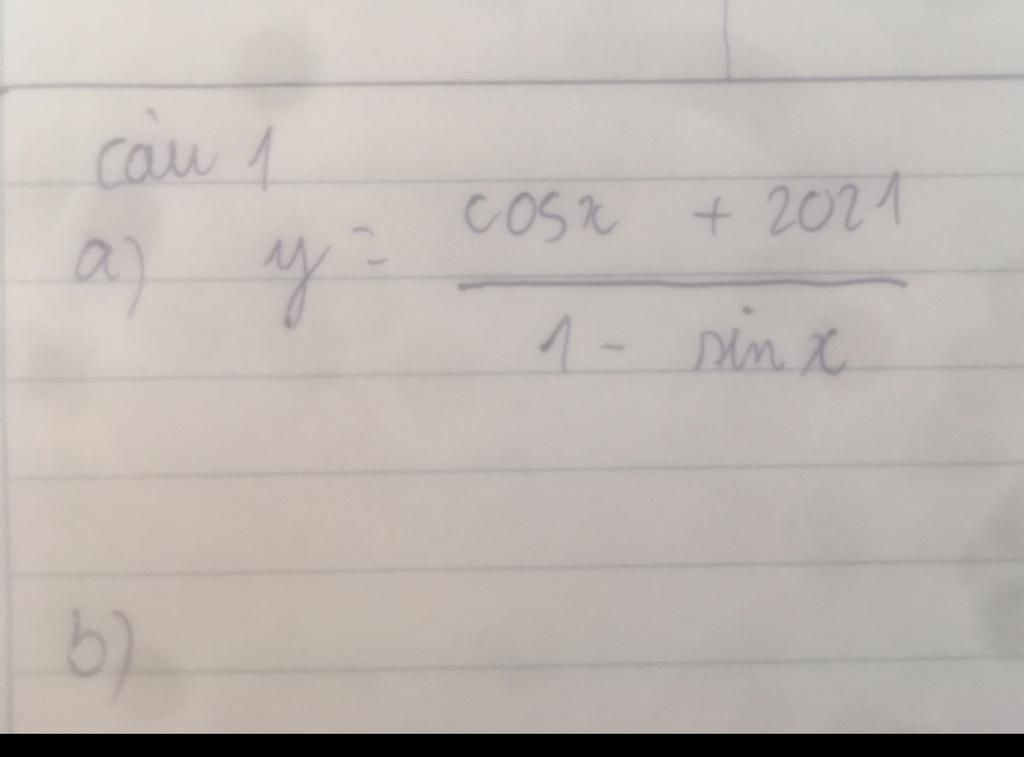 câu 1
a) y = cosx + 2021
1 - sin x
b)